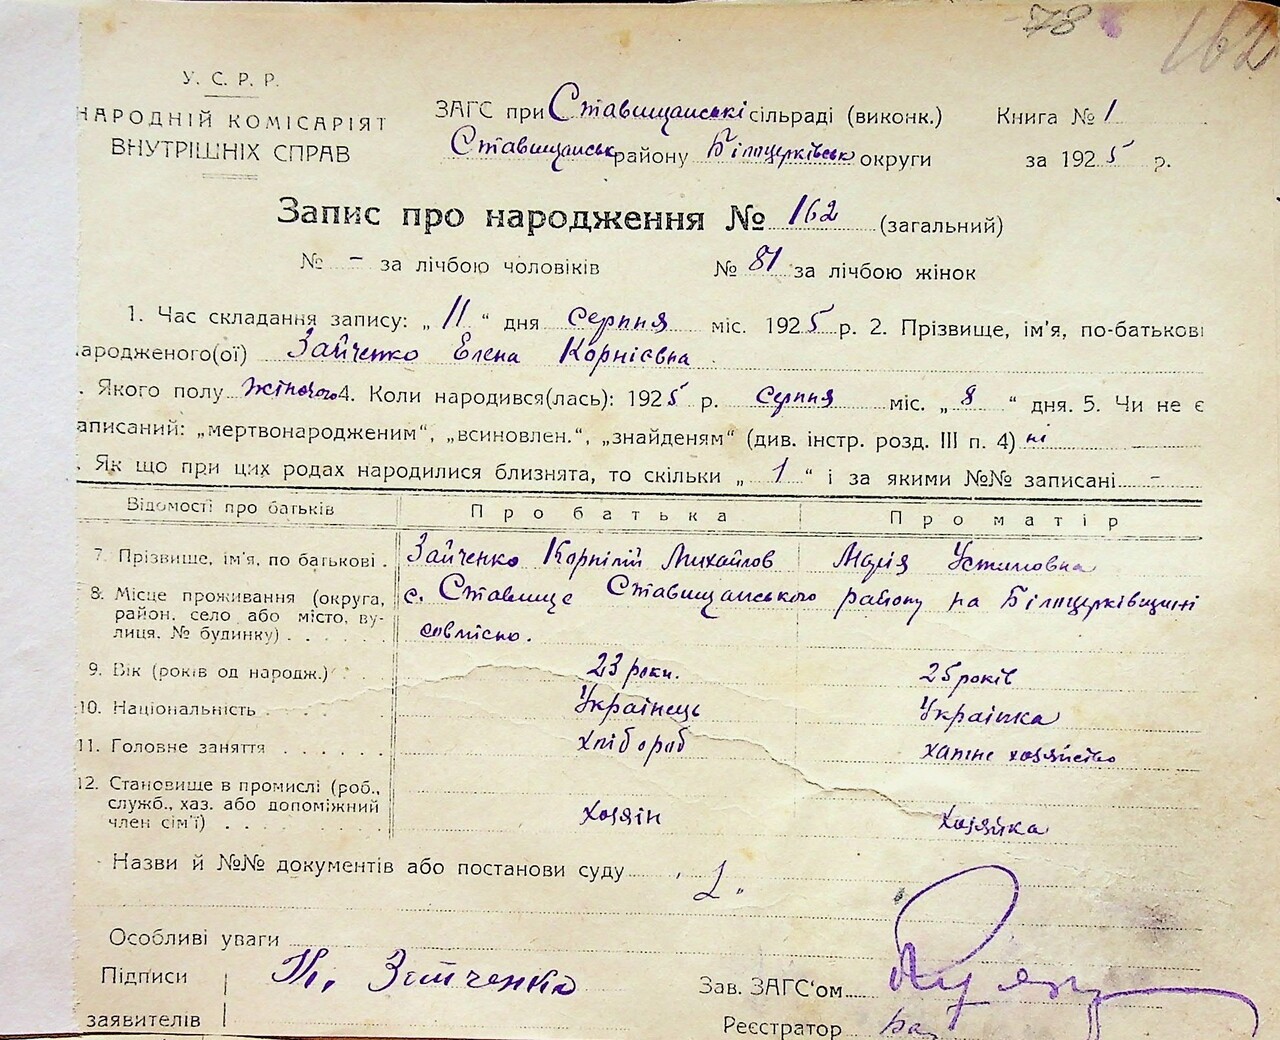 78 162
У. С. Р. Р.
НАРОДНІЙ КОМІСАРІЯТ
ВНУТРІШНІХ СПРАВ
ЗАГС при Ставищанські сільраді (виконк.) Книга № 1
Ставищанськ району Білоцерківськ округи за 1925 р.
Запис про народження № 162 (загальний)
№ - за лічбою чоловіків № 81 за лічбою жінок
1. Час складання запису: „ 11 “ дня серпня міс. 1925 р. 2. Прізвище, ім'я, по-батькові
народженого(ої) Зайченко Елена Корнієвна
. Якого полу жіночого 4. Коли народився(лась): 1925 р. серпня міс. „ 8 “ дня. 5. Чи не є
аписаний: „мертвонародженим“, „всиновлен.“, „знайденям“ (див. інстр. розд. III п. 4) ні
. Як що при цих родах народилися близнята, то скільки „ 1 “ і за якими №№ записані -
Відомості про батьків Про батька Про матір
7. Прізвище, ім'я, по батькові . Зайченко Корнілій Михайлов Марія Устиновна
8. Місце проживання (округа, район, село або місто, вулиця. № будинку) с. Ставище Ставищанського району на Білоцерківщині
совмісно.
9. Вік (років од народж.) 23 роки. 25 років
10. Національність Українець Українка
11. Головне заняття хлібороб хатнє хозяйство
12. Становище в промислі (роб., служб., хаз. або допоміжний член сім'ї) хозяїн хозяйка
Назви й №№ документів або постанови суду
Особливі уваги
Підписи Зайченко Зав. ЗАГС'ом
заявителів Реєстратор